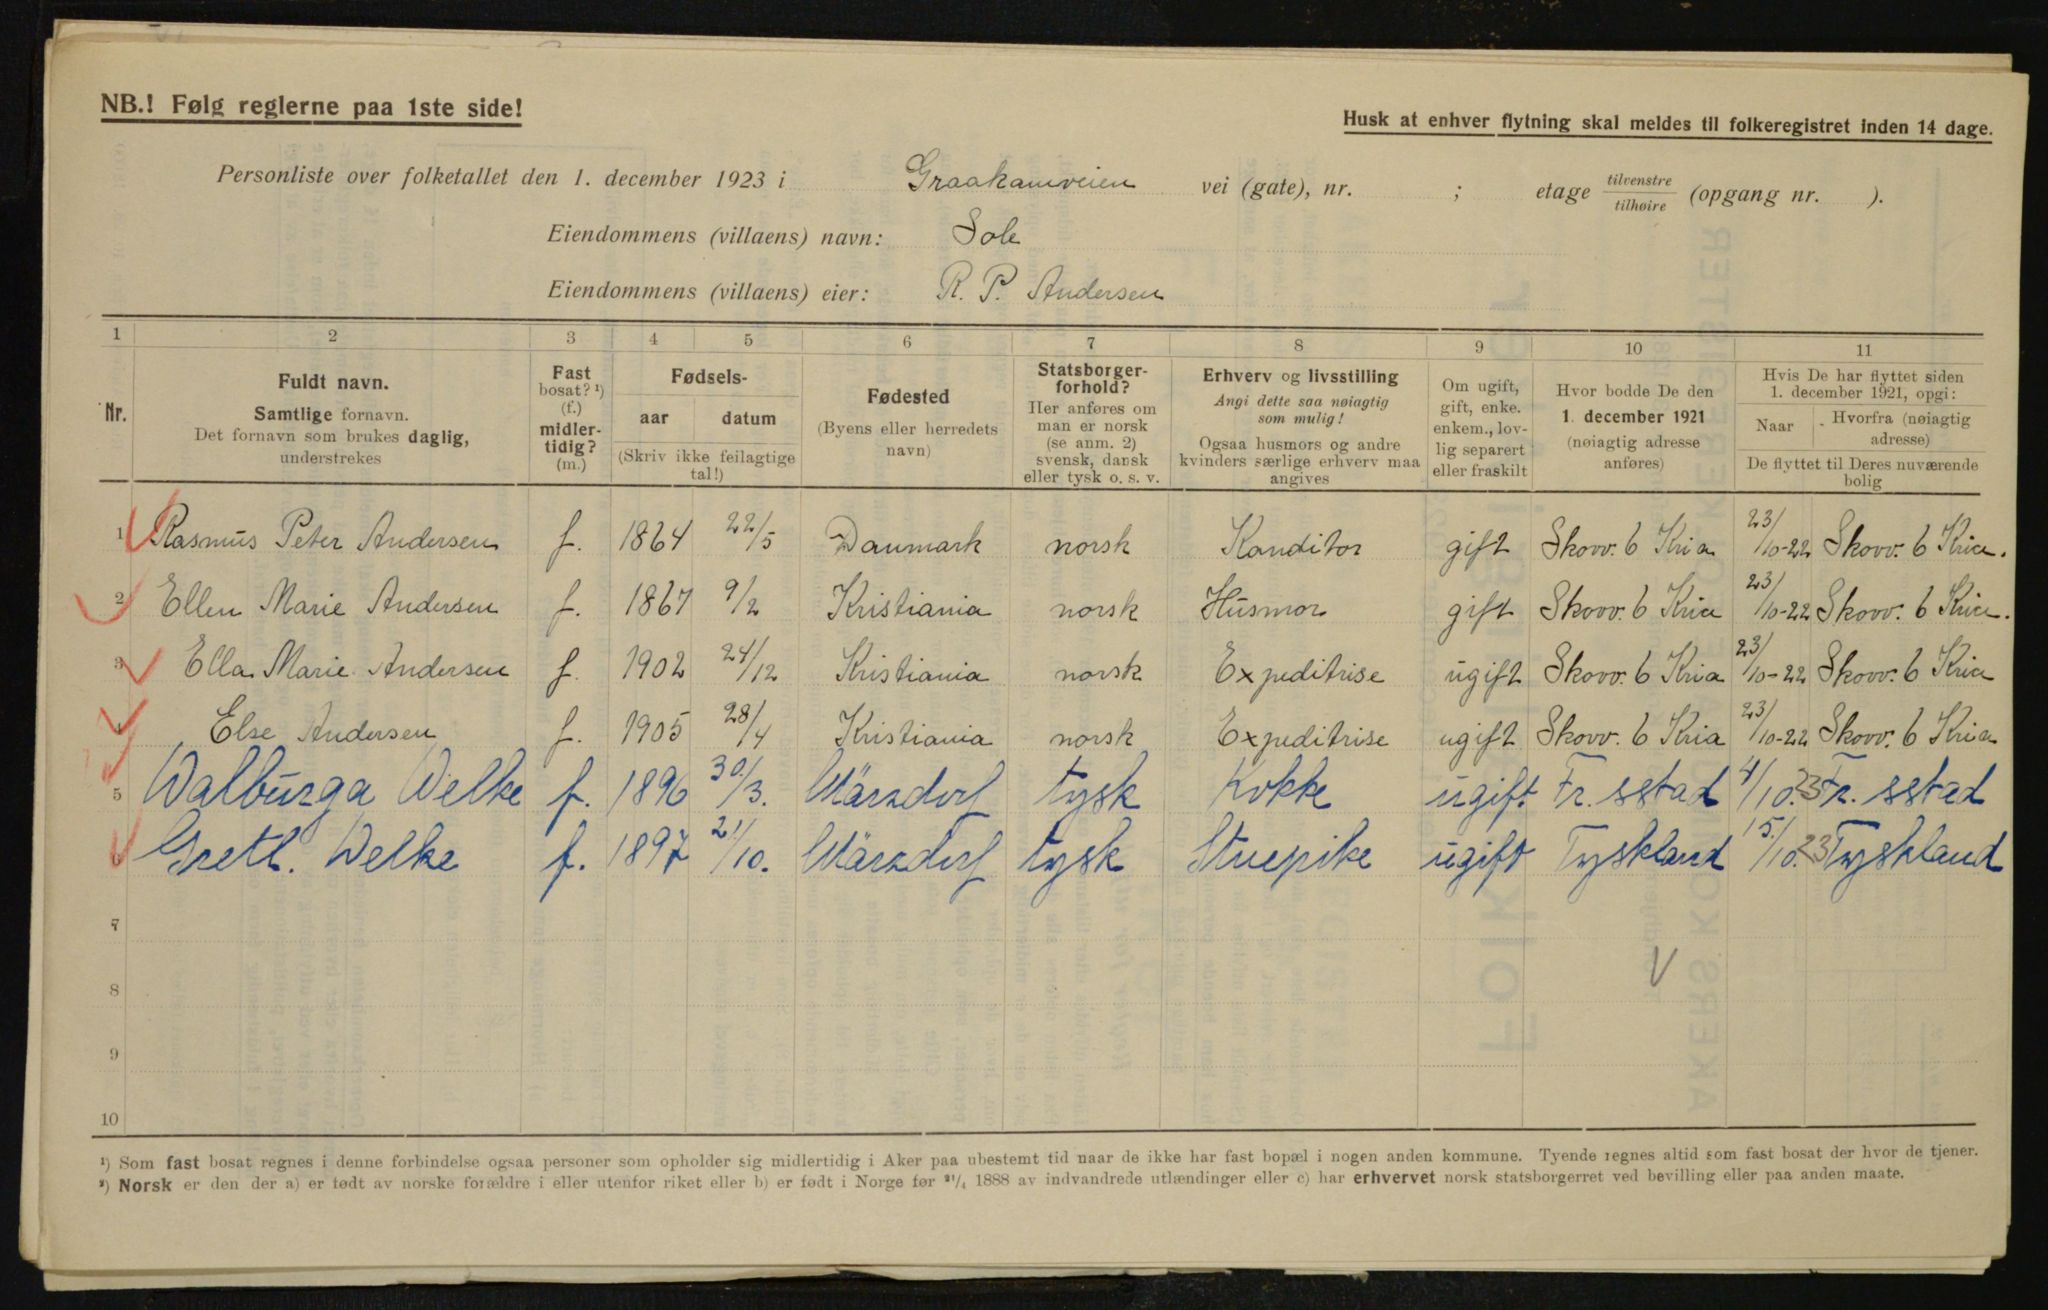 NB.! Følg reglerne paa 1ste side!
Husk at enhver flytning skal meldes til folkeregistret inden 14 dage.
Personliste over folketallet den 1. december 1923 i Graakamveien vei (gate), nr. ; etage tilvenstre/tilhøire (opgang nr. ).
Eiendommens (villaens) navn: Sole
Eiendommens (villaens) eier: R. P. Andersen
1 2 3 4 5 6 7 8 9 10 11
Nr.
Fuldt navn.
Samtlige fornavn.
Det fornavn som brukes daglig,
understrekes
Fast
bosat? ¹)
(f.)
midler-
tidig?
(m.)
Fødsels-
aar datum
(Skriv ikke feilagtige
tal!)
Fødested
(Byens eller herredets
navn)
Statsborger-
forhold?
Her anføres om
man er norsk
(se anm. 2)
svensk, dansk
eller tysk o. s. v.
Erhverv og livsstilling
Angi dette saa nøiagtig
som mulig!
Ogsaa husmors og andre
kvinders særlige erhverv maa
angives
Om ugift,
gift, enke.
enkem., lov-
lig separert
eller fraskilt
Hvor bodde De den
1. december 1921
(nøiagtig adresse
anføres)
Hvis De har flyttet siden
1. december 1921, opgi:
Naar
Hvorfra (nøiagtig
adresse)
De flyttet til Deres nuværende
bolig
1 Rasmus Peter Andersen f. 1864 22/5 Danmark norsk Kanditor gift Skovv. 6 Kria 23/10-22 Skovv. 6 Kria.
2 Ellen Marie Andersen f. 1867 9/2 Kristiania norsk Husmor gift Skovv. 6 Kria 23/10-22 Skovv. 6 Kria.
3 Ella Marie Andersen f. 1902 24/12 Kristiania norsk Expeditrise ugift Skovv. 6 Kria 23/10-22 Skovv. 6 Kria
4 Else Andersen f. 1905 28/4 Kristiania norsk Expeditrise ugift Skovv. 6 Kria 23/10-22 Skovv. 6 Kria
5 Walburga Welke f. 1896 30/3. Märzdorf tysk Kokke ugift Fr. sstad 4/10.23 Fr. sstad
6 Gretl. Welke f. 1897 21/10. Märzdorf tysk Stuepike ugift Tyskland 15/10.23 Tyskland
7
8
9
10
¹) Som fast bosat regnes i denne forbindelse ogsaa personer som opholder sig midlertidig i Aker paa ubestemt tid naar de ikke har fast bopæl i nogen anden kommune. Tyende regnes altid som fast bosat der hvor de tjener.
²) Norsk er den der a) er født av norske forældre i eller utenfor riket eller b) er født i Norge før ²¹/₄ 1888 av indvandrede utlændinger eller c) har erhvervet norsk statsborgerret ved bevilling eller paa anden maate.